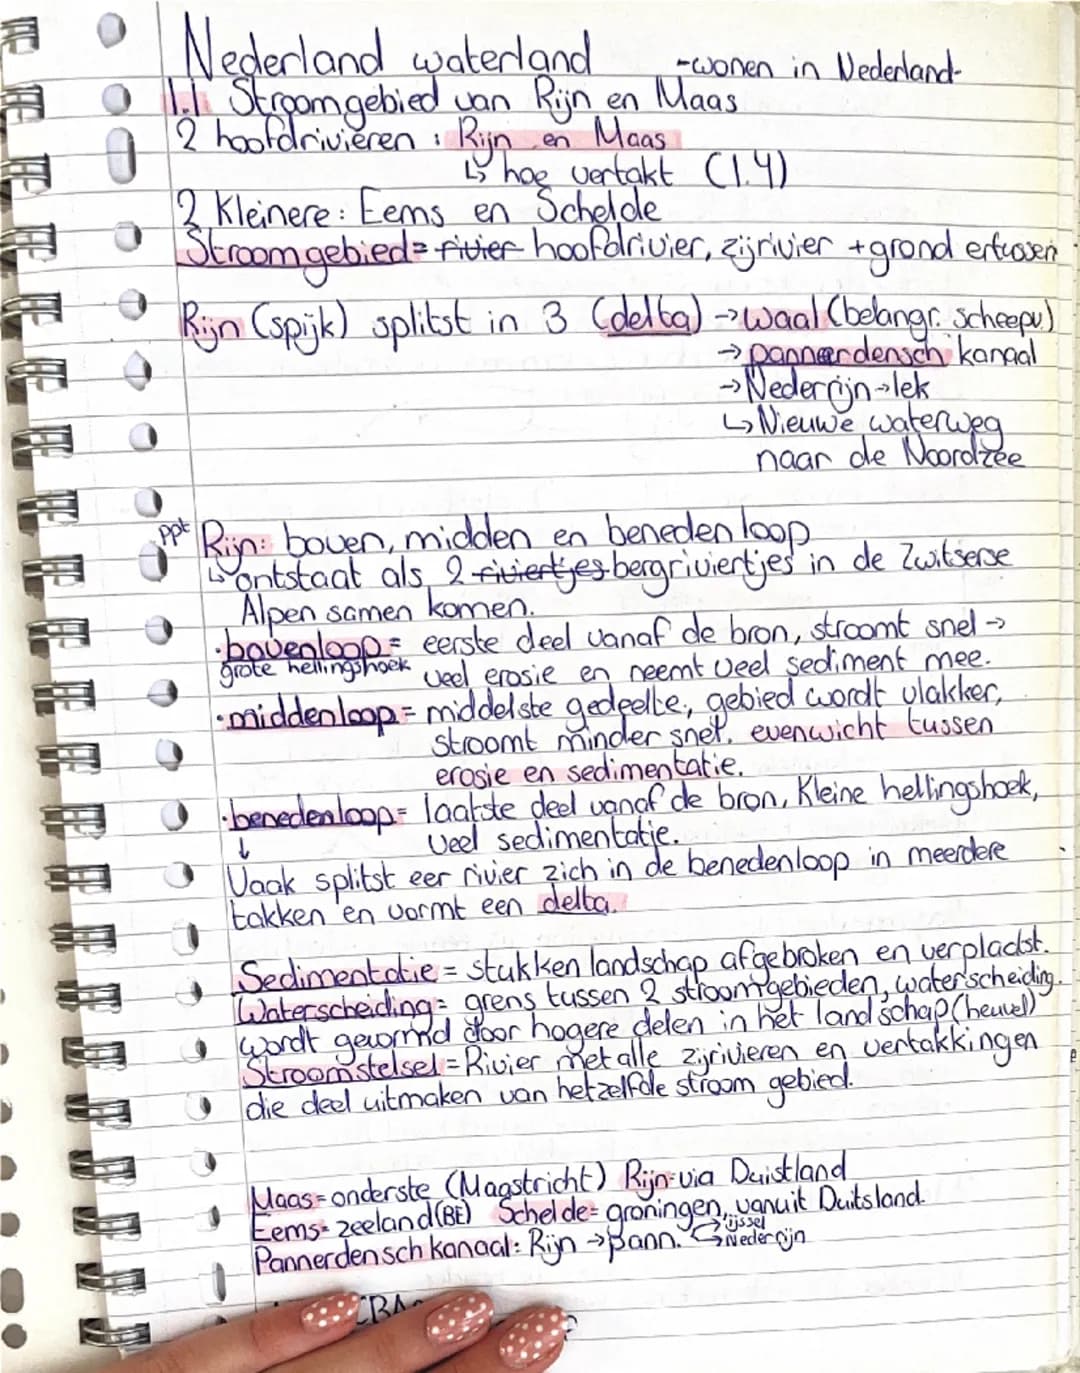 Nederland waterland -wonen in Nederland-
1.1 Stroomgebied van Rijn en Maas
2 hoofdrivieren : Rijn en Maas
↳ hoe vertakt (1.4)
2 Kleinere: Eems en Schelde
Stroomgebied= rivier hoofdrivier, zijrivier + grond ertussen
Rijn (spijk) splitst in 3 (delta) → waal (belangr. scheepv.)
→ pannerdensch kanaal
→ Nederrijn → lek
↳ Nieuwe waterweg
naar de Noordzee
ppt Rijn: boven, midden en beneden loop
↳ ontstaat als 2 riviertjes bergriviertjes in de Zwitserse
Alpen samen komen.
·bovenloop = eerste deel vanaf de bron, stroomt snel →
grote hellingshoek veel erosie en neemt veel sediment mee.
·middenloop = middelste gedeelte, gebied wordt vlakker,
stroomt minder snel. evenwicht tussen
erosie en sedimentatie.
·benedenloop= laatste deel vanaf de bron, Kleine hellingshoek,
↓ veel sedimentatie.
Vaak splitst eer rivier zich in de benedenloop in meerdere
takken en vormt een delta.
Sedimentatie = stukken landschap afgebroken en verplaatst.
Waterscheiding = grens tussen 2 stroomgebieden, waterscheiding
wordt gevormd door hogere delen in het landschap (heuvel)
Stroomstelsel = Rivier met alle zijrivieren en vertakkingen
die deel uitmaken van hetzelfde stroom gebied.
Maas= onderste (Maastricht) Rijn= via Duistland
Eems= zeeland (BE) Schelde= groningen, vanuit Duitsland.
Pannerdensch kanaal: Rijn → pann. → ijssel
↳ Nederrijn